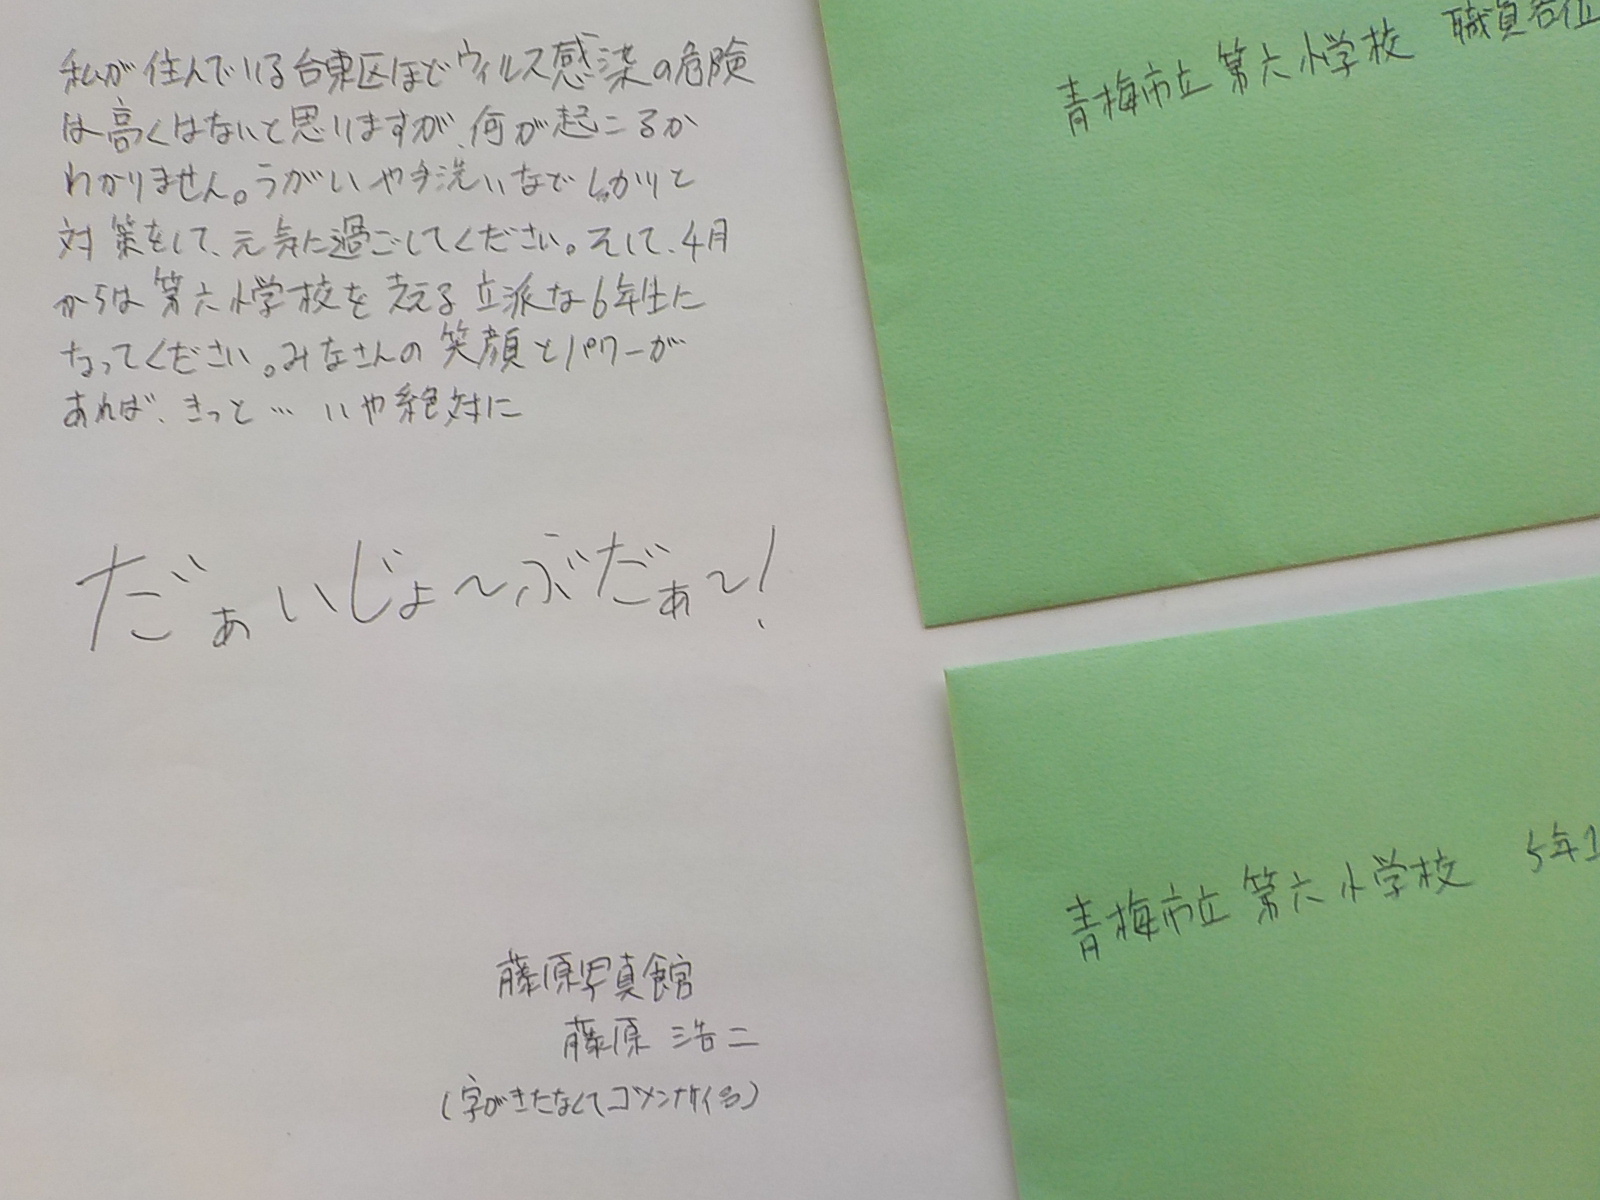 私が住んでいる台東区ほどウィルス感染の危険
は高くはないと思いますが、何が起こるか
わかりません。うがいや手洗いなどしっかりと
対策をして、元気に過ごしてください。そして、4月
からは第六小学校を支える立派な6年生に
なってください。みなさんの笑顔とパワーが
あれば、きっと… いや絶対に
だぁいじょ〜ぶだぁ〜!
藤原写真館
藤原 浩二
(字がきたなくてゴメンナサイ)
青梅市立第六小学校 職員各位
青梅市立第六小学校 5年1